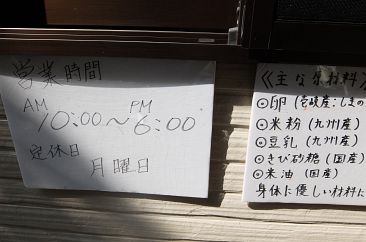 営業時間
AM PM
10:00〜6:00
定休日
月曜日
《主な原材料》
◎卵(壱岐産:しまの
◎米粉(九州産)
◎豆乳(九州産)
◎きび砂糖(国産)
◎米油(国産)
身体に優しい材料に